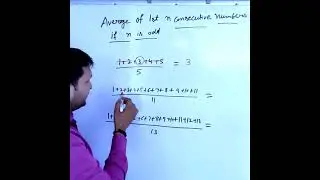 Average of 1st n consecutive numbers
If n is odd
1+2+3+4+5 / 5 = 3
1+2+3+ +5+6+7+8+9+10+11 / 11 =
1+ 6+7+8+9+10+11+12+13 / 13 =